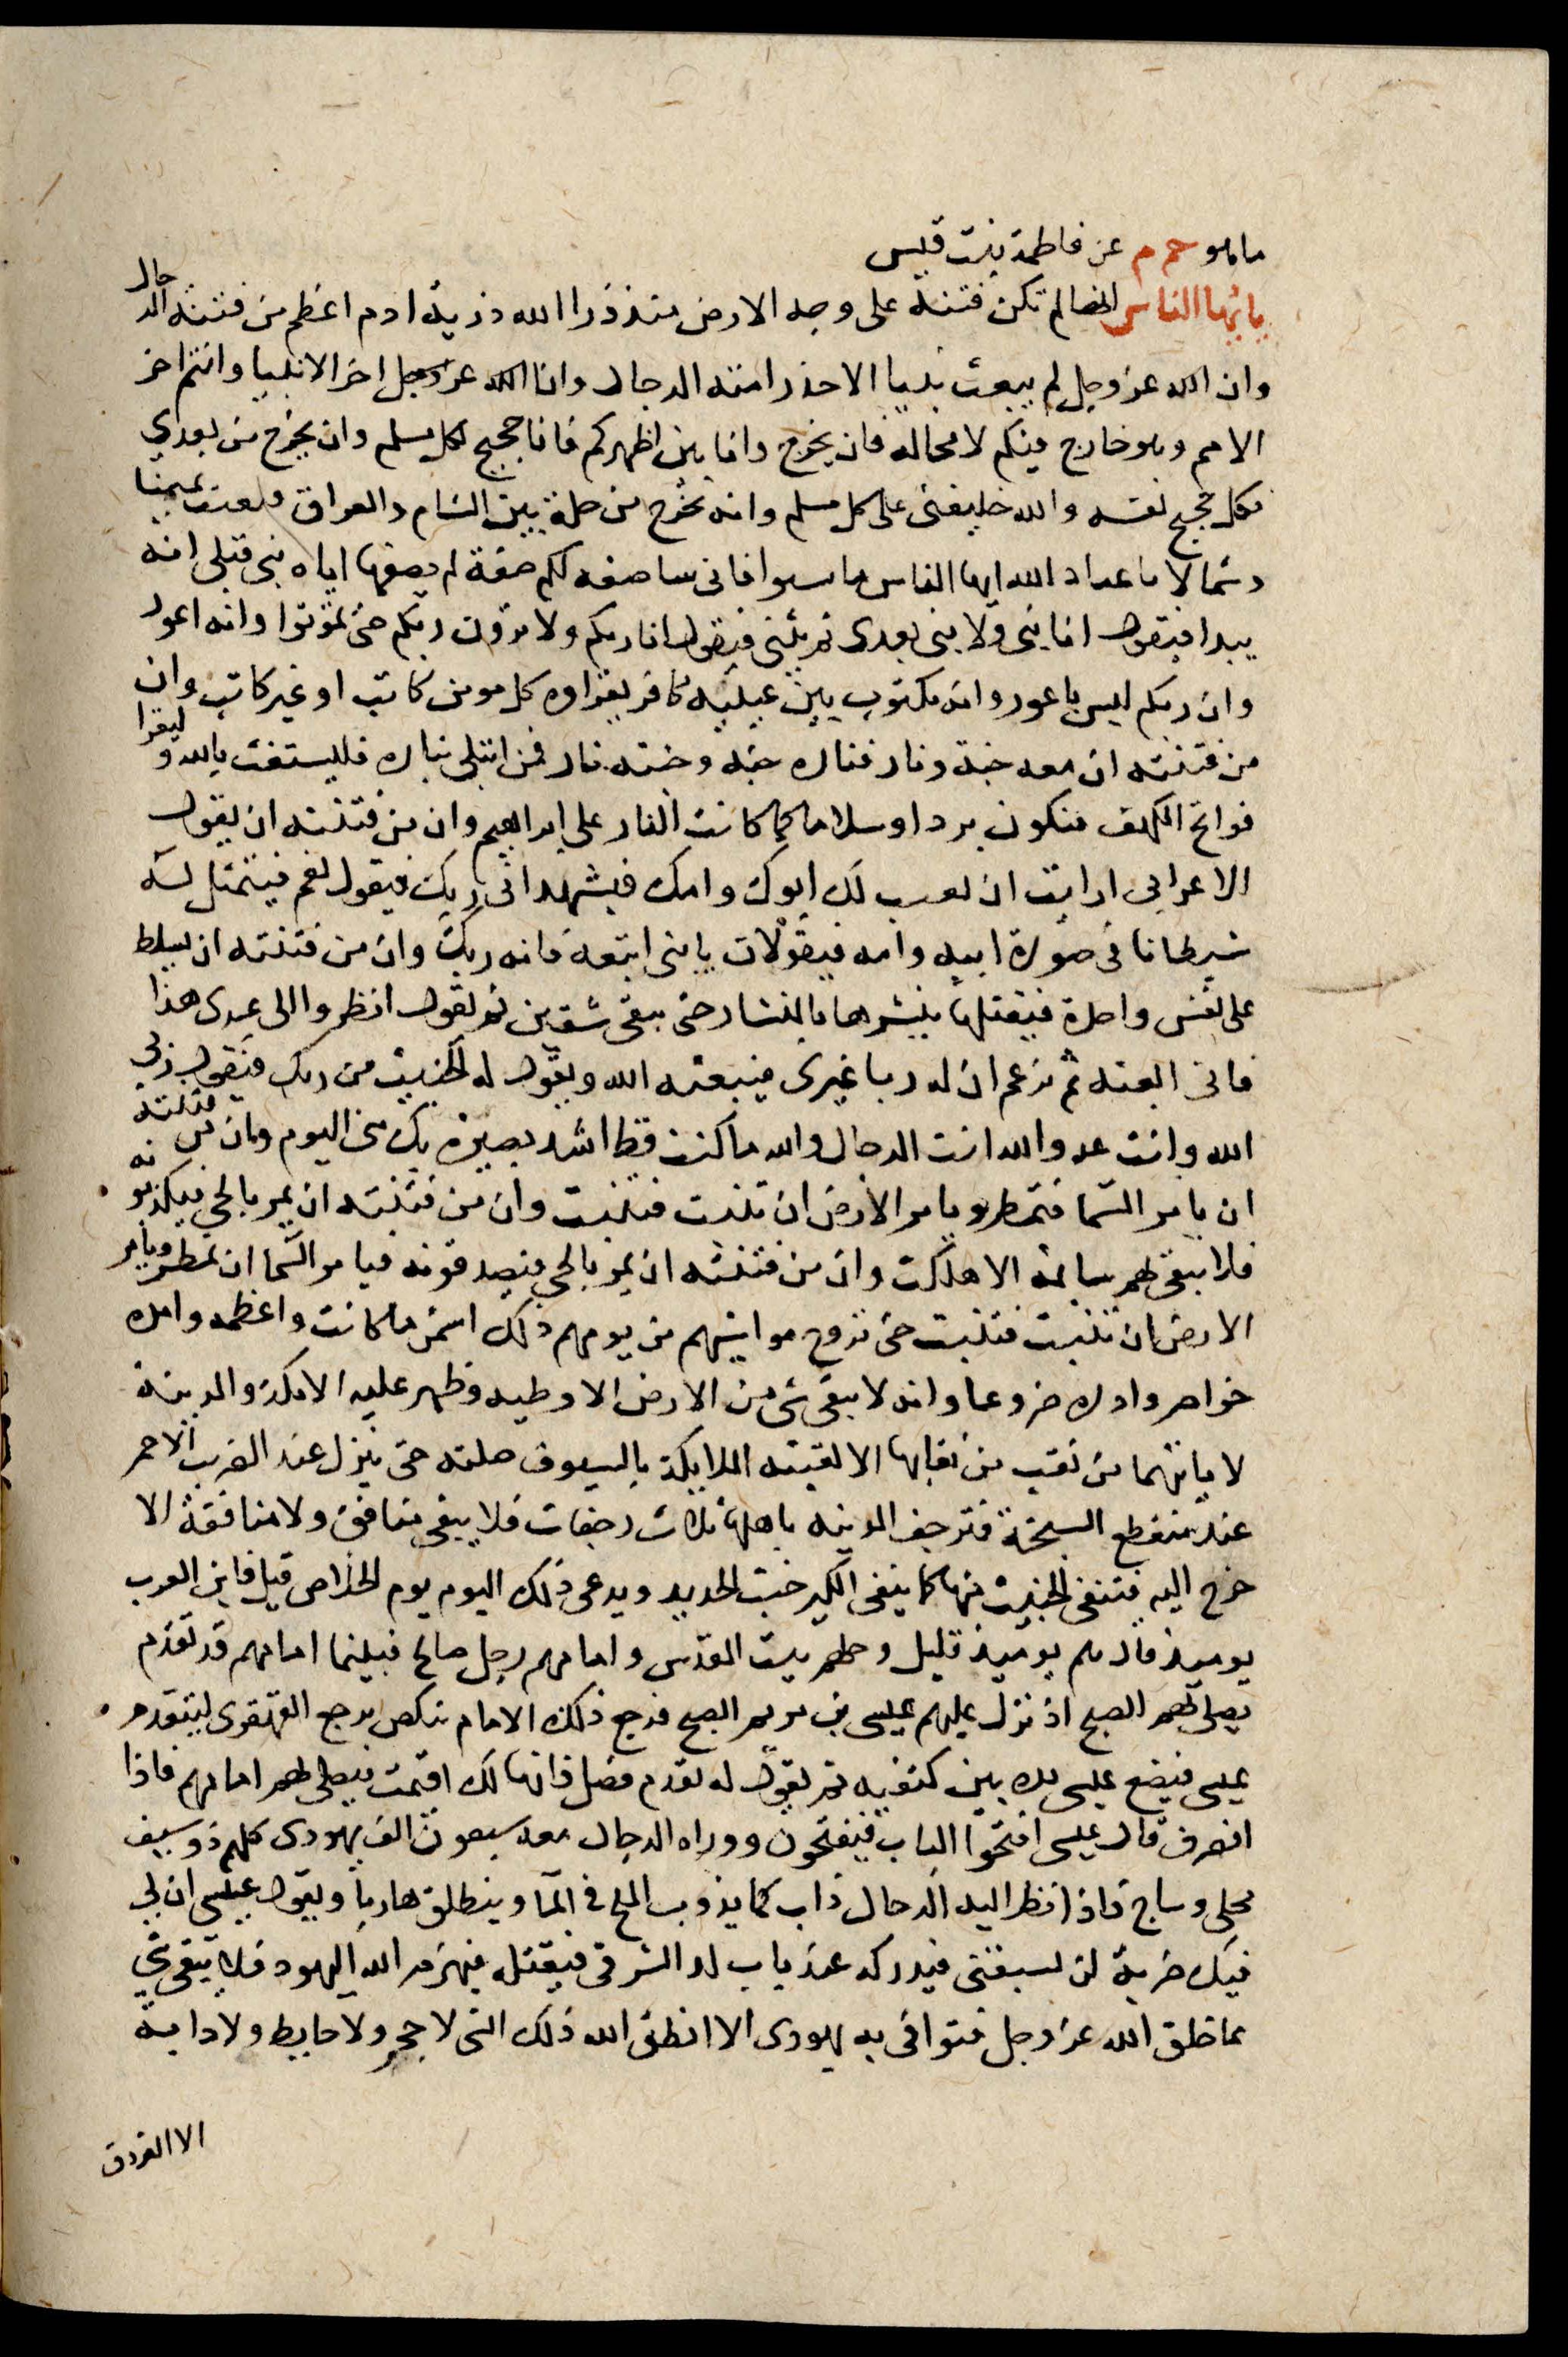 ما هو حم م عن فاطمة بنت قيس
يا ايها الناس انها لم تكن فتنة على وجه الارض منذ ذرا الله ذرية ادم اعظم من فتنة الدجال
وان الله عز وجل لم يبعث نبيا الا حذر امته الدجال وانا اخر الانبيا وانتم اخر
الامم وهو خارج فيكم لا محالة فان يخرج وانا بين اظهركم فانا حجيج لكل مسلم وان يخرج من بعدي
فكل حجيج نفسه والله خليفتي على كل مسلم وانه يخرج من حلة بين الشام والعراق فيعيث يمينا
وشمالا يا عباد الله ايها الناس فاثبتوا فاني ساصفه لكم صفة لم يصفها اياه نبي قبلي انه
يبدا فيقول انا نبي ولا نبي بعدي ثم يثني فيقول انا ربكم ولا ترون ربكم حتى تموتوا وانه اعور
وان ربكم ليس باعور وانه مكتوب بين عينيه كافر يقراه كل مومن كاتب او غير كاتب وان
من فتنته ان معه جنة ونار فناره جنة وجنته نار فمن ابتلي بناره فليستغث بالله وليقرا
فواتح الكهف فتكون بردا وسلاما كما كانت النار على ابراهيم وان من فتنته ان يقول
الاعرابي ارايت ان بعثت لك ابوك وامك فيشهد اني ربك فيقول نعم فيتمثل له
شيطانا في صورة ابيه وامه فيقولان يا بني اتبعه فانه ربك وان من فتنته ان يسلط
على نفس واحدة فيقتلها ينشرها بالمنشار حتى يبقى شقين ثم يقول انظروا الى عبدي هذا
فاني ابعثه ثم يزعم ان له ربا غيري فيبعثه الله ويقول له الخبيث من ربك فيقول ربي
الله وانت عدو الله انت الدجال والله ما كنت قط اشد بصيرة بك مني اليوم وان من فتنته
ان يامر السما فتمطر ويامر الارض ان تنبت فتنبت وان من فتنته ان يمر بالحي فيكذبونه
فلا يبقى لهم سايمة الا هلكت وان من فتنته ان يمر بالحي فيصدقونه فيامر السما ان تمطر ويامر
الارض ان تنبت فتنبت حتى تروح مواشيهم من يومهم ذلك اسمن ما كانت واعظمه وامده
خواصر وادره ضروعا وانه لا يبقى شي من الارض الا وطيه وظهر عليه الا مكة والمدينة
لا ياتيهما من نقب من نقابها الا لقيته الملايكة بالسيوف صلته حتى ينزل عند الضريب الاحمر
عند منقطع السبخة فترجف المدينه باهلها ثلاث رجفات فلا يبقى منافق ولا منافقة الا
خرج اليه فتنفي الخبيث منها كما ينفي الكير خبث الحديد ويدعى ذلك اليوم يوم الخلاص قيل فاين العرب
يوميذ قال هم يوميذ قليل وجلهم ببيت المقدس وامامهم رجل صالح فبينما امامهم قد تقدم
يصلي بهم الصبح اذ نزل عليهم عيسى بن مريم الصبح فرجع ذلك الامام ينكص يرجع القهقرى ليتقدم
عيسى فيضع عيسى يده بين كتفيه ثم يقول له تقدم فصل فانها لك اقيمت فيصلي بهم امامهم فاذا
انصرف قال عيسى افتحوا الباب فيفتحون ووراه الدجال معه سبعون الف يهودي كلهم ذو سيف
محلى وساج فاذا نظر اليه الدجال ذاب كما يذوب الملح في الما وينطلق هاربا ويقول عيسى ان لي
فيك ضربة لن تسبقني فيدركه عند باب لد الشرقي فيقتله فيهزم الله اليهود فلا يبقى شي
مما خلق الله عز وجل فتواقى به يهودي الا انطق الله ذلك الشي لا حجر ولا حايط ولا دابة
الا الغرقد